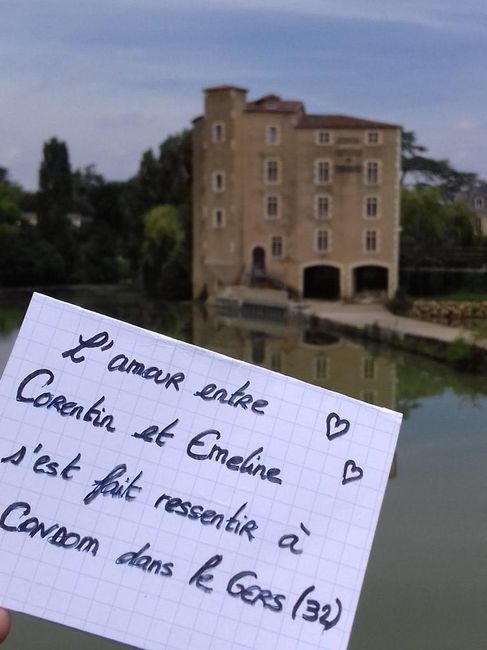 L'amour entre
Corentin et Emeline
s'est fait ressentir à
Condom dans le Gers (32)